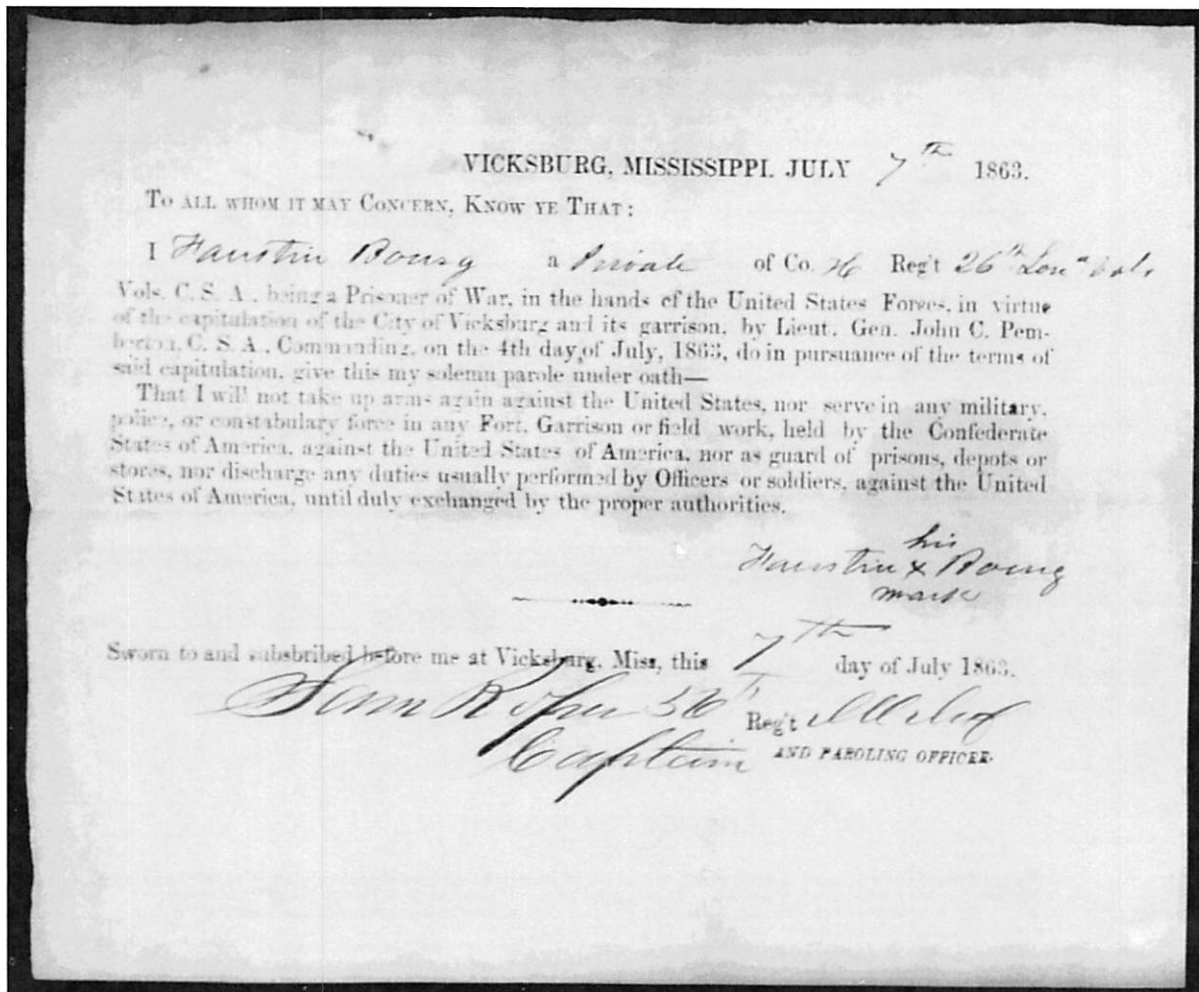 VICKSBURG, MISSISSIPPI. JULY 7th 1863.
TO ALL WHOM IT MAY CONCERN, KNOW YE THAT:
I Faustin Bourg a Private of Co. H Reg't 26th Lou'a Vols
Vols. C. S. A., being a Prisoner of War, in the hands of the United States Forces, in virtue
of the capitulation of the City of Vicksburg and its garrison, by Lieut. Gen. John C. Pem-
berton, C. S. A., Commanding, on the 4th day of July, 1863, do in pursuance of the terms of
said capitulation, give this my solemn parole under oath—
That I will not take up arms again against the United States, nor serve in any military,
police, or constabulary force in any Fort, Garrison or field work, held by the Confederate
States of America, against the United States of America, nor as guard of prisons, depots or
stores, nor discharge any duties usually performed by Officers or soldiers, against the United
States of America, until duly exchanged by the proper authorities.
his
Faustin x Bourg
mark
Sworn to and subsbribed before me at Vicksburg, Miss, this 7th day of July 1863.
Sam Reg't
Captain AND PAROLING OFFICER.